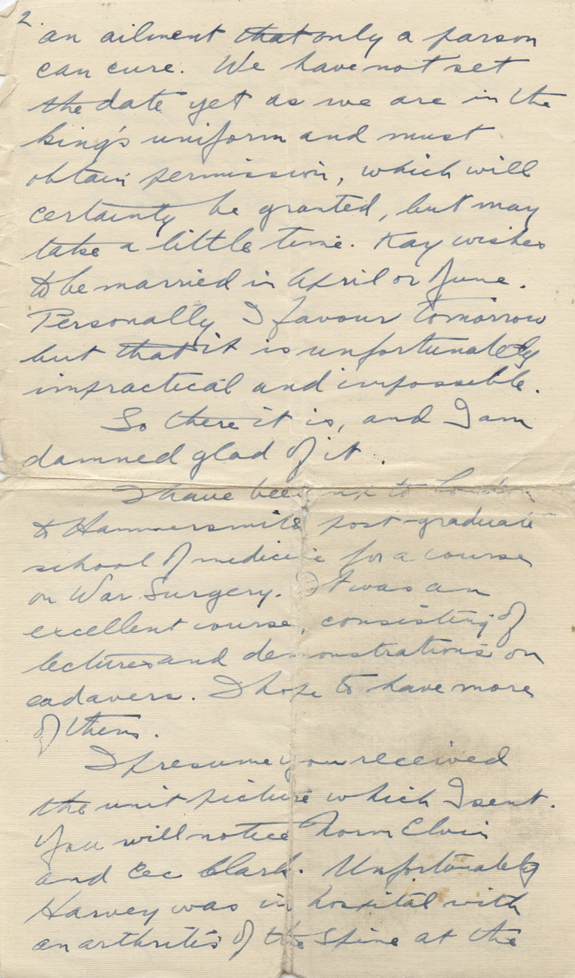 2.
an ailment that only a parson
can cure. We have not set
the date yet as we are in the
king's uniform and must
obtain permission, which will
certainty be granted, but may
take a little time. Kay wishes
to be married in April or June.
Personally I favour tomorrow
but that it is unfortunately
impractical and impossible.
So there it is, and I am
damned glad of it.
I have been up to London
to Hammersmith post-graduate
school of medicine for a course
on War Surgery. It was an
excellent course, consisting of
lectures and demonstrations on
cadavers. I hope to have more
of them.
I presume you received
the unit picture which I sent.
You will notice Norm Elvin
and Cec Clark. Unfortunately
Harvey was in hospital with
an arthritis of the spine at the